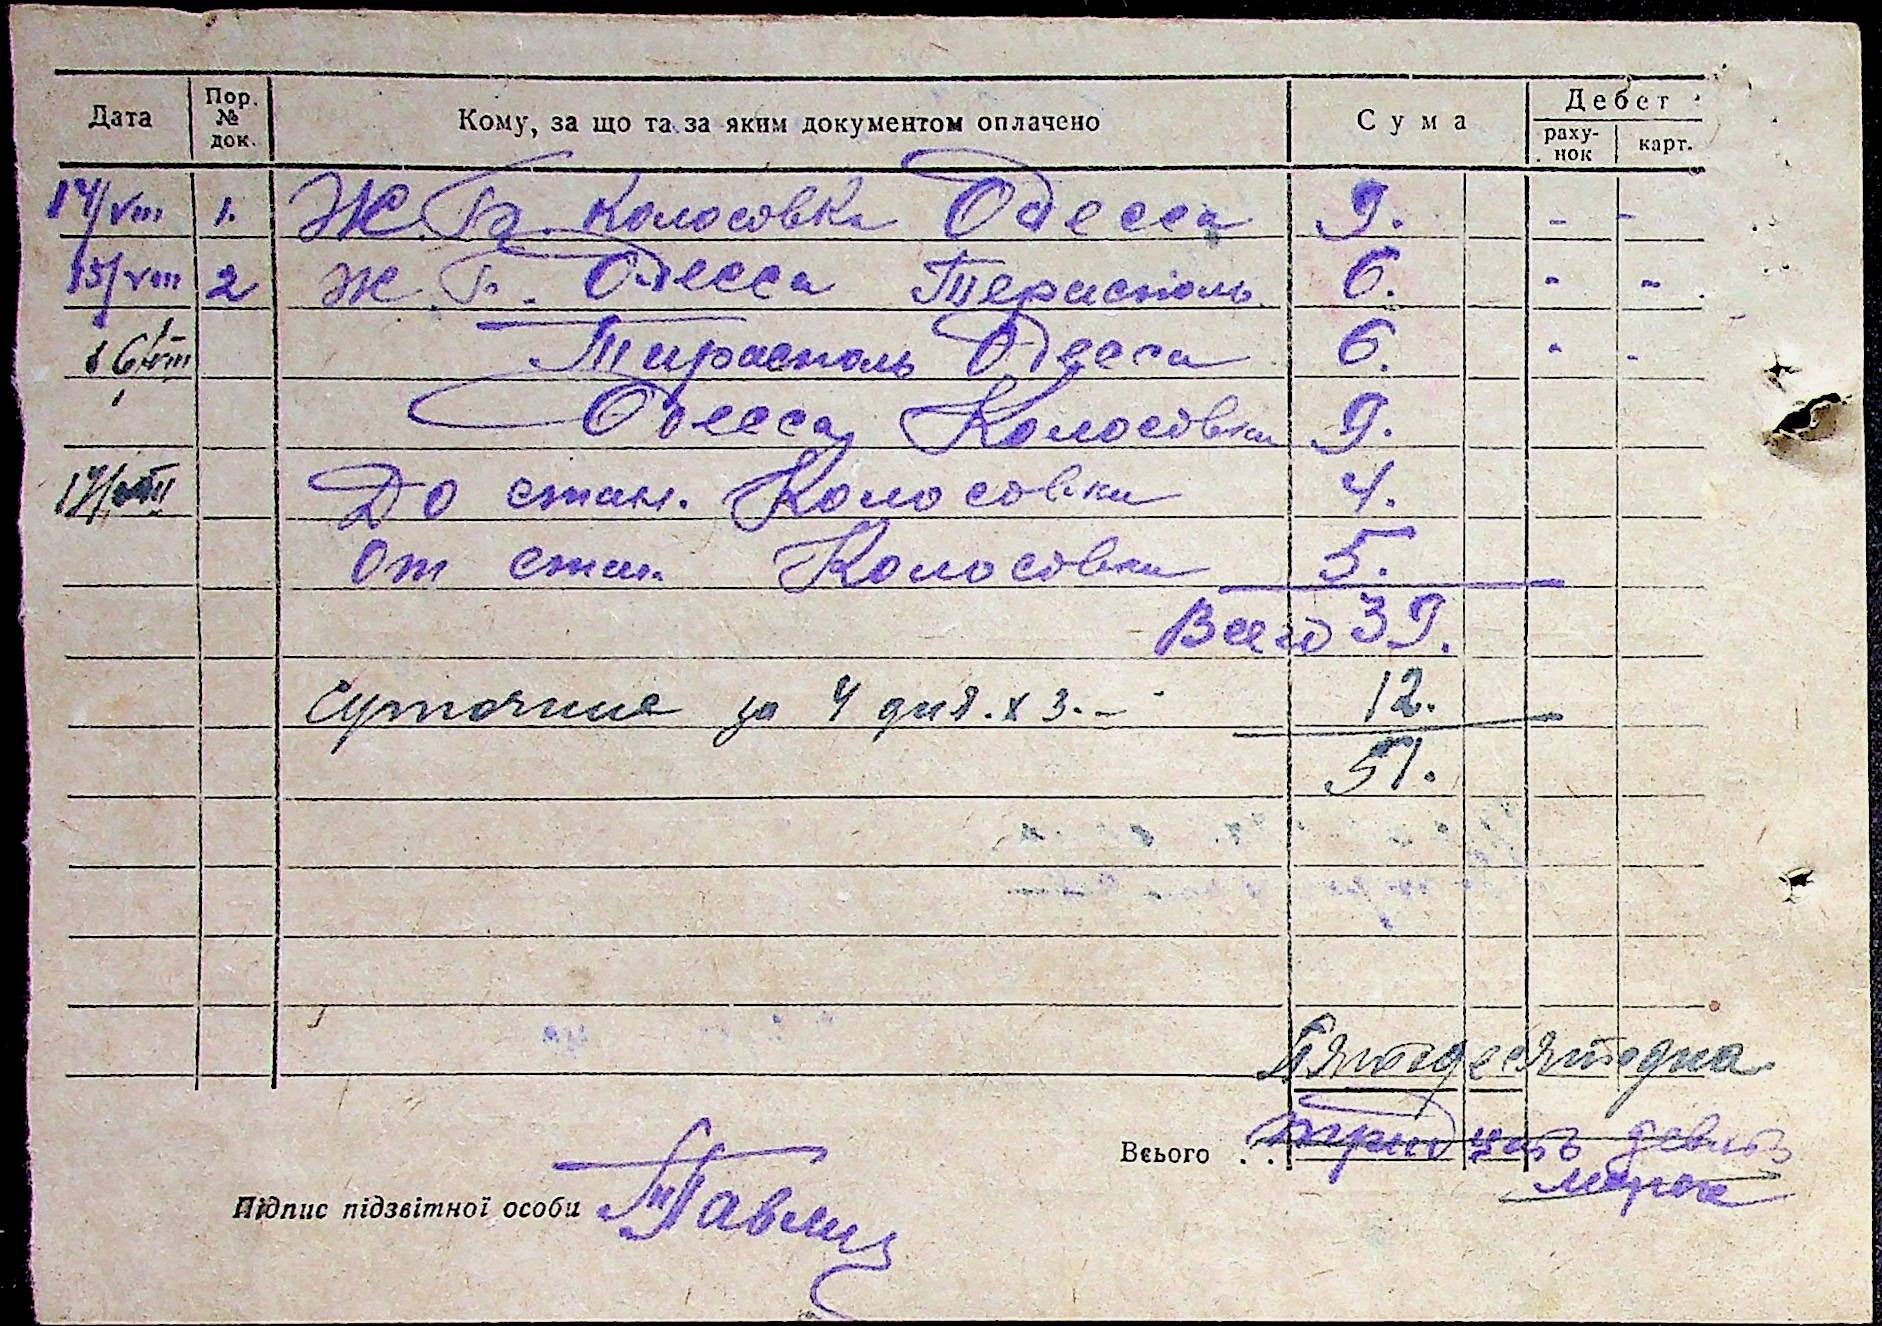 Дата Пор. № док. Кому, за що та за яким документом оплачено Сума Дебет раху-нок карт.
14/VIII 1. Ж. Б. Колосовка Одесса 9. - -
15/VIII 2 Ж. Б. Одесса Тирасполь 6. - -
16/VIII Тирасполь Одесса 6. - -
Одесса Колосовка 9.
17/VIII До стан. Колосовки 4.
От стан. Колосовки 5.
Всего 39.
Суточние за 4 дня. х 3.- 12.
51.
Пятьдесят одна
Всього . . тридцать девять
марок
Підпис підзвітної особи